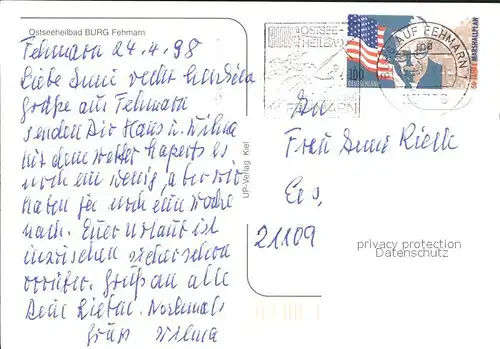 Ostseeheilbad BURG Fehmarn
Fehmarn 24.4.98
Liebe Susi recht herzliche
Grüße aus Fehmarn
senden Dir Hans u. Wilma
mit dem Wetter haperts es
noch ein wenig, aber wir
haben ja noch eine Woche
nach. Euer Urlaub ist
inzwischen sicher schon
vorrüber. Gruß an alle
Deine Lieben. Nochmals
Gruß Wilma
UP-Verlag Kiel
OSTSEE-
HEILBAD
BURG AUF FEHMARN
100
DEUTSCHLAND
50 JAHRE MARSHALLPLAN
An
Frau Susi
21109
privacy protection
Datenschutz